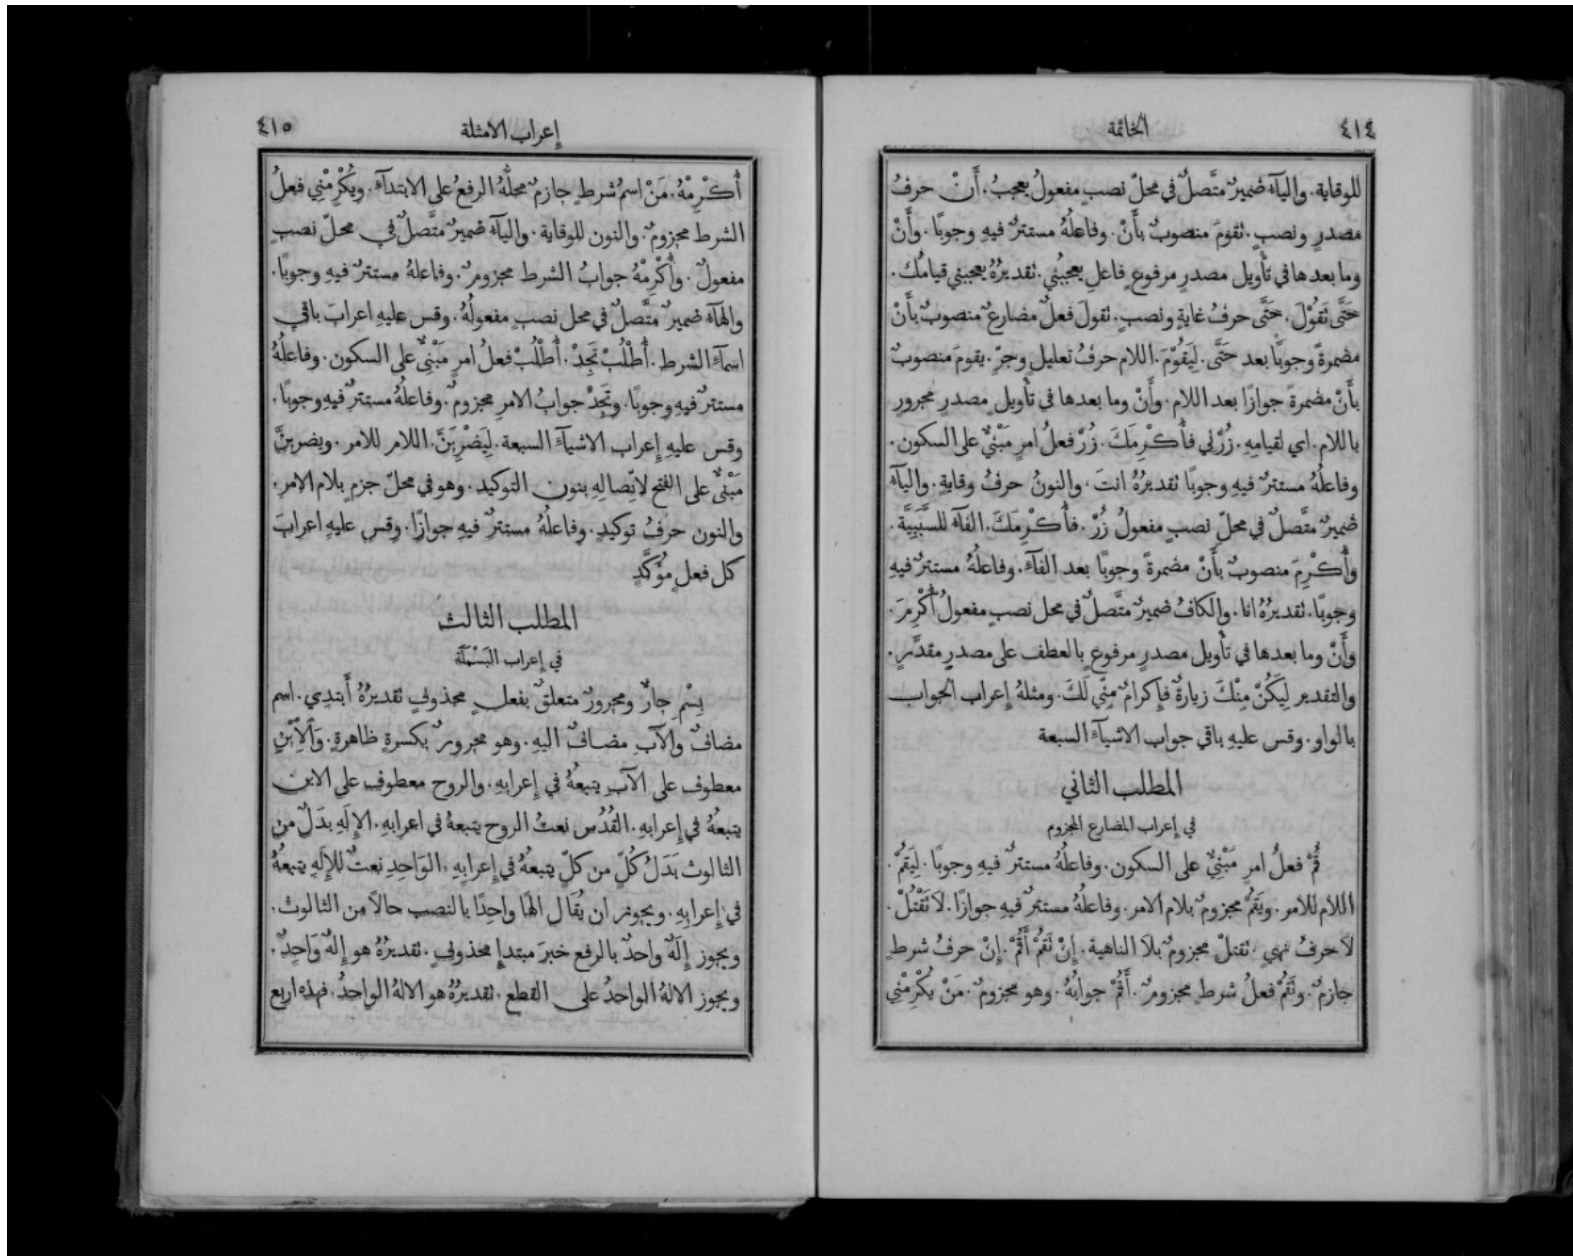 ٤١٤
الخاتمة
للوقاية. والياۤء ضميرٌ متَّصلٌ في محلّ نصبٍ مفعولُ يعجبُ. أَنْ حرفُ
مصدرٍ ونصبٍ. تقومَ منصوبٌ بأَنْ. وفاعلُهُ مستترٌ فيهِ وجوبًا. وأَنْ
وما بعدها في تأْويل مصدرٍ مرفوعٍ فاعلِ يعجبُني. تقديرُهُ يعجبني قيامُك.
حَتَّى تَقُوْلَ. حَتَّى حرفُ غايةٍ ونصبٍ. تقولَ فعلٌ مضارعٌ منصوبٌ بأَنْ
مضمرةً وجوبًا بعد حَتَّى. لِيَقُوْمَ. اللام حرفُ تعليلٍ وجرٍّ. يقومَ منصوبٌ
بأَنْ مضمرةً جوازًا بعد اللام. وأَنْ وما بعدها في تأْويل مصدرٍ مجرورٍ
باللام. اي لقيامِهِ. زُرْني فأُكْرِمَكَ. زُرْ فعلُ امرٍ مَبْنيٌّ على السكون.
وفاعلُهُ مستترٌ فيهِ وجوبًا تقديرُهُ انتَ. والنونُ حرفُ وقايةٍ. والياۤء
ضميرٌ متَّصلٌ في محلّ نصبٍ مفعولُ زُرْ. فأُكْرِمَكَ. الفاۤء للسَّبَبِيَّة.
وأُكْرِمَ منصوبٌ بأَنْ مضمرةً وجوبًا بعد الفاۤء. وفاعلُهُ مستترٌ فيهِ
وجوبًا. تقديرُهُ انا. والكافُ ضميرٌ متَّصلٌ في محل نصبٍ مفعولُ أُكْرِمَ.
وأَنْ وما بعدها في تأْويل مصدرٍ مرفوعٍ بالعطف على مصدرٍ مقدَّرٍ.
والتقدير لِيَكُنْ مِنْكَ زيارةٌ فإِكرامٌ مِنّي لَكَ. ومثلهُ إِعراب الجواب
بالواو. وقس عليهِ باقي جواب الاشياۤء السبعة
المطلب الثاني
في إِعراب المضارع المجزوم
قُمْ فعلُ امرٍ مَبْنِيٌّ على السكون. وفاعلُهُ مستترٌ فيهِ وجوبًا. لِيَقُمْ.
اللام للامر. ويَقُمْ مجزومٌ بلام الامر. وفاعلُهُ مستترٌ فيهِ جوازًا. لاَ تَقْتُلْ.
لاَ حرفُ نهيٍ. تقتلْ مجزومٌ بلاَ الناهية. إِنْ تَقُمْ أَقُمْ. إِنْ حرفُ شرطٍ
جازمٌ. وتَقُمْ فعلُ شرطٍ مجزومٌ. أَقُمْ جوابُهُ. وهو مجزومٌ. مَنْ يُكْرِمْنِي
إِعراب الامثلة
٤١٥
أُكْرِمْهُ. مَنْ اسمُ شرطٍ جازمٌ محلُّهُ الرفعُ على الابتداۤء. ويُكْرِمْنِي فعلُ
الشرط مجزومٌ. والنون للوقاية. والياۤء ضميرٌ متَّصلٌ في محلّ نصبٍ
مفعولٌ. وأُكْرِمْهُ جوابُ الشرط مجزومٌ. وفاعلهُ مستترٌ فيهِ وجوبًا.
والهاۤء ضميرٌ متَّصلٌ في محل نصبٍ مفعولُهُ. وقس عليهِ اعرابَ باقي
اسماۤءِ الشرط. أُطْلُبْ تَجِدْ. أُطْلُبْ فعلُ امرٍ مَبْنِيٌّ على السكون. وفاعلُهُ
مستترٌ فيهِ وجوبًا. وتَجِدْ جوابُ الامرِ مجزومٌ. وفاعلُهُ مستترٌ فيهِ وجوبًا.
وقس عليهِ إِعراب الاشياۤء السبعة. لِيَضْرِبَنَّ. اللام للامر. ويضربنَّ
مَبْنيٌّ على الفتح لاتِّصالِهِ بنون التوكيد. وهو في محلّ جزمٍ بلام الامرِ.
والنون حرفُ توكيدٍ. وفاعلُهُ مستترٌ فيهِ جوازًا. وقس عليهِ اعرابَ
كل فعلٍ مؤَكَّدٍ
المطلب الثالث
في إِعراب البَسْمَلَة
بِسْمِ جارٌّ ومجرورٌ متعلقٌ بفعلٍ محذوفٍ تقديرُهُ أَبتدِي. اسم
مضافٌ والآبِ مضافٌ اليهِ. وهو مجرورٌ بكسرةٍ ظاهرةٍ. وَالاِّبْنِ
معطوف على الآبِ يتبعُهُ في إِعرابهِ. والروح معطوف على الابن
يتبعُهُ في إِعرابهِ. القُدُسِ نعتُ الروح يتبعهُ في اعرابهِ. الإِلَهِ بدَلٌ من
الثالوث بَدَلُ كُلٍّ من كلٍّ يتبعُهُ في إِعرابِهِ. الوَاحِدِ نعتٌ للإِلَهِ يتبعُهُ
في إِعرابِهِ. ويجوز ان يُقَال الهًا واحِدًا بالنصب حالاً مِن الثالوث.
ويجوز إِلَهٌ واحدٌ بالرفع خبرَ مبتدإٍ محذوفٍ. تقديرُهُ هو إِلهٌ وَاحِدٌ.
ويجوز الالهُ الواحدُ على القطع. تقديرُهُ هو الالهُ الواحدُ. فهذه اربع